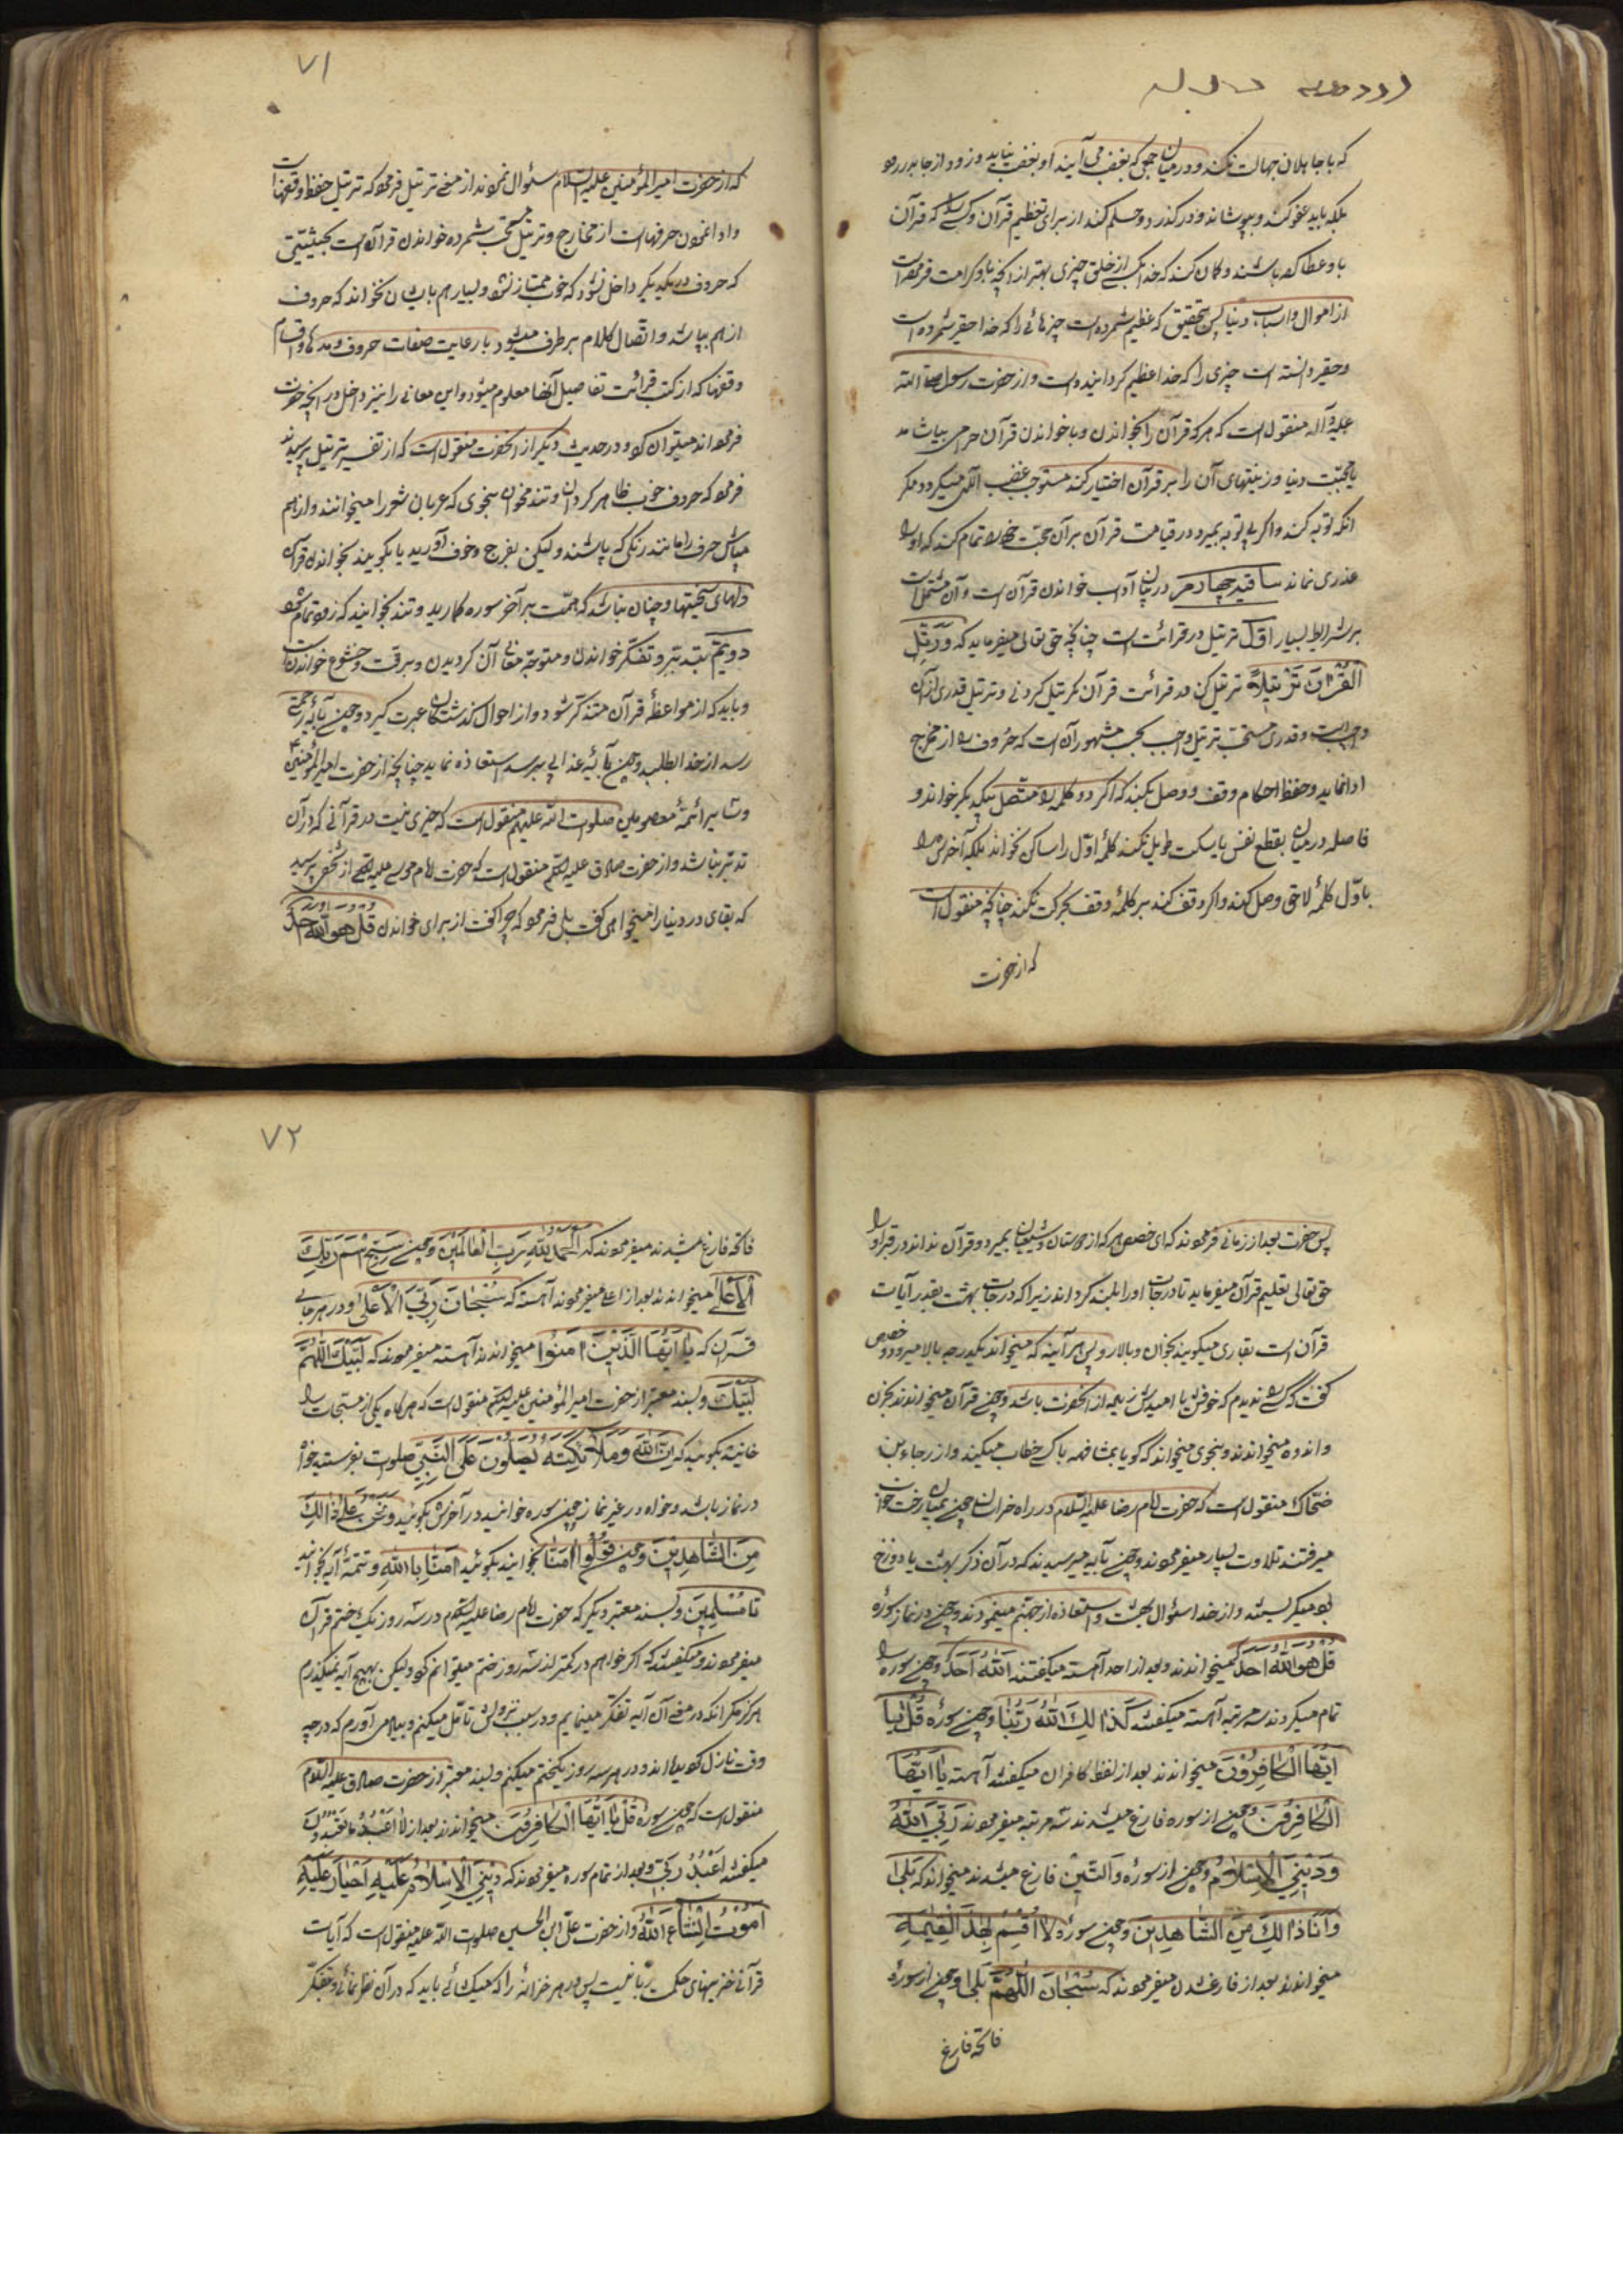 که با جاهلان جهالت نکند و در میان جمعی که بغضب می آیند او بغضب نیاید و زود از جا بدر نرود
بلکه باید عفو کند و بپوشاند و در گذرد و حلم کند از برای تعظیم قرآن و کسی را که قرآن
باو عطا کرده باشند و گمان کند که خدا بکسی از خلق چیزی بهتر از آنچه باو کرامت فرموده است
از اموال و اسباب دنیا پس بتحقیق که عظیم شمرده است چیزهائی را که خدا حقیر شمرده است
و حقیر دانسته است چیزی را که خدا عظیم گردانیده است و از حضرت رسول صلی الله
علیه و آله منقول است که هر که قرآن را بخواند و با خواندن قرآن حرامی بیاشامد
یا محبّت دنیا و زینتهای آن را بر قرآن اختیار کند مستوجب غضب الهی میگردد مگر
آنکه توبه کند و اگر بی توبه بمیرد در قیامت قرآن بر آن حجّت خود را تمام کند که او را
عذری نماند ساقیه چهارم در بیان آداب خواندن قرآن است و آن مشتمل است
بر شرایط بسیار اوّل ترتیل در قرائت است چنانچه حق تعالی میفرماید که وَرَتِّلِ
الْقُرْآنَ تَرْتِیلاً ترتیل کن در قرائت قرآن ترتیل کردنی و ترتیل قدری از آن
واجبست و قدری مستحبّ ترتیل واجب بحسب مشهور آن است که حروف را از مخرج
ادا نماید و حفظ احکام وقف و وصل بکند که اگر دو کلمه را متّصل بیکدیگر خواند و
فاصله در میان بقطع نفس یا سکت طویل نکند کلمهٔ اوّل را ساکن نخواند بلکه آخرش را
باوّل کلمهٔ لاحق وصل کند و اگر وقف کند بر کلمهٔ وقف بحرکت نکند چنانچه منقول است
که از حضرت
۷۱
که از حضرت امیر المؤمنین علیه السلام سئوال نمودند از معنی ترتیل فرمود که ترتیل حفظ وقفها است
و ادا نمودن حرفهاست از مخارج و ترتیل مستحب شمرده خواندن قرآن است بحیثیّتی
که حروف در یکدیگر داخل نشود که خوب ممتاز نشود و بسیار هم پاشان نخواند که حروف
از هم بپاشد و اتّصال کلام بر طرف میشود با رعایت صفات حروف و مدها و اقسام
وقفها که از کتب قرائت تفاصیل آنها معلوم میشود و این معانی را نیز داخل در آنچه حضرت
فرموده اند میتوان کرد و در حدیث دیگر از آنحضرت منقول است که از تفسیر ترتیل پرسیدند
فرمود که حروف خوب ظاهر کردان و تند مخوان بنحوی که عربان شعر را میخوانند و از هم
مپاش حرف را مانند ریکی که پاشند و لیکن بفزع و خوف آورید یا بکوبید بخواندن قرآن
دلهای سختیها و چنان نباشد که همّت بر آخر سوره گمارید و تند بخوانید که زود تمام شود
دویّم بتدبّر و تفکّر خواندن و متوجّه معانی آن گردیدن و برقّت و خشوع خواندن است
و باید که از مواعظ قرآن متذکّر شود و از احوال گذشتگان عبرت گیرد و چون بآیهٔ رحمتی
رسد از خدا بطلبد و چون بآیهٔ عذابی برسد استعاذه نماید چنانچه از حضرت امیر المؤمنین
و سایر ائمهٔ معصومین صلوات الله علیهم منقول است که خیری نیست در قرآنی که در آن
تدبّر نباشد و از حضرت صادق علیه السلام منقول است که حضرت امام موسی علیه السلام از شخصی پرسید
که بقای در دنیا را میخواهی گفت بلی فرمود که چرا گفت از برای خواندن قل هو الله احد
پس حضرت بعد از زمانی فرمودند که ای حفص هر که از دوستان و شیعیان ما بمیرد و قرآن نداند در قبر او را
حق تعالی تعلیم قرآن میفرماید تا درجات او را بلند گرداند زیرا که درجات بهشت بقدر آیات
قرآن است بقاری میگویند بخوان و بالا رو پس هر آیه که میخواند یکدرجه بالا میرود و حفص
گفت که کسی را ندیدم که خوفش یا امیدش زیاده از آنحضرت باشد و چون قرآن میخواندند بحزن
و اندوه میخواندند و بنحوی میخواند که گویا بمشافهه با کسی خطاب میکند و از رجاء بن
ضحّاک منقول است که حضرت امام رضا علیه السلام در راه خراسان چون بمیان رخت خواب
میرفتند تلاوت بسیار میفرمودند و چون بآیه میرسیدند که در آن ذکر بهشت یا دوزخ
بود میگریستند و از خدا سئوال بهشت و استعاذه از جهنّم مینمودند و چون در نماز سورهٔ
قل هو الله احد میخواندند بعد از احد آهسته میگفتند اَللهُ اَحَدٌ و چون سوره را
تمام میکردند سه مرتبه آهسته میگفتند کَذَالِکَ اللهُ رَبُّنَا و چون سورهٔ قُلْ یَا
اَیُّهَا الْکَافِرُونَ میخواندند بعد از لفظ کافران میگفتند آهسته یَا اَیُّهَا
الْکَافِرُونَ و چون از سوره فارغ میشدند سه مرتبه میفرمودند رَبِّیَ اللهُ
وَدِیْنِیَ الْاِسْلَامُ و چون از سوره وَالتِّیْنِ فارغ میشدند میخواند که بَلٰی
وَاَنَا ذَالِکَ مِنَ الشَّاهِدِینَ و چون سورهٔ لَا اُقْسِمُ بِیَوْمِ الْقِیٰمَةِ
میخواندند بعد از فارغ شدن میفرمودند که سُبْحَانَ اللّٰهُمَّ بَلٰی و چون از سورهٔ
فاتحه فارغ
۷۲
فاتحه فارغ میشدند میفرمودند که اَلْحَمْدُ لِلّٰهِ رَبِّ الْعَالَمِیْنَ و چون سَبِّحِ اسْمَ رَبِّکَ
الْاَعْلٰی میخواندند بعد از اعلی میفرمودند آهسته که سُبْحَانَ رَبِّیَ الْاَعْلٰی و در هر جای
قرآن که یَا اَیُّهَا الَّذِیْنَ اٰمَنُوا میخواندند آهسته میفرمودند که لَبَّیْکَ اللّٰهُمَّ
لَبَّیْکَ و بسند معتبر از حضرت امیر المؤمنین علیه السلام منقول است که هر گاه یکی از مسبّحات را
خوانید بگوئید که اِنَّ اللهَ وَمَلَائِکَتَهُ یُصَلُّونَ عَلَی النَّبِیِّ صلوات بفرستید خواه
در نماز باشد و خواه در غیر نماز چون سوره خوانید در آخرش بگوئید وَنَحْنُ عَلٰی ذَالِکَ
مِنَ الشَّاهِدِیْنَ و چون قُوْلُوا اٰمَنَّا بخوانید بگوئید اٰمَنَّا بِاللهِ و تتمّهٔ آیه بخوانید
تا مُسْلِمِیْنَ و بسند معتبر دیگر که حضرت امام رضا علیه السلام در سه روز یک ختم قرآن
میفرمودند و میگفتند که اگر خواهم در کمتر از سه روز ختم میتوانم کرد ولیکن بهیچ آیه نمیگذرم
هرگز مگر آنکه در معنی آن آیه تفکّر مینمایم و در سبب نزولش تأمّل میکنم و بیاد می آورم که در چه
وقت نازل گردیده و در هر سه روز یکختم میکنم و بسند معتبر از حضرت صادق علیه السلام
منقول است که چون سورهٔ قُلْ یَا اَیُّهَا الْکَافِرُوْنَ میخواندند بعد از لَا اَعْبُدُ مَا تَعْبُدُونَ
میگفتند اَعْبُدُ رَبِّی و بعد از تمام سوره میفرمودند که دِیْنِیَ الْاِسْلَامُ عَلَیْهِ اَحْیَا وَعَلَیْهِ
اَمُوْتُ اِنْشَاءَ اللهُ و از حضرت علی ابن الحسین صلوات الله علیه منقول است که آیات
قرآنی خزینهای حکمت ربّانیست پس در هر خزانهٔ را که میگشائی باید که در آن نظر نمائی و تفکّر